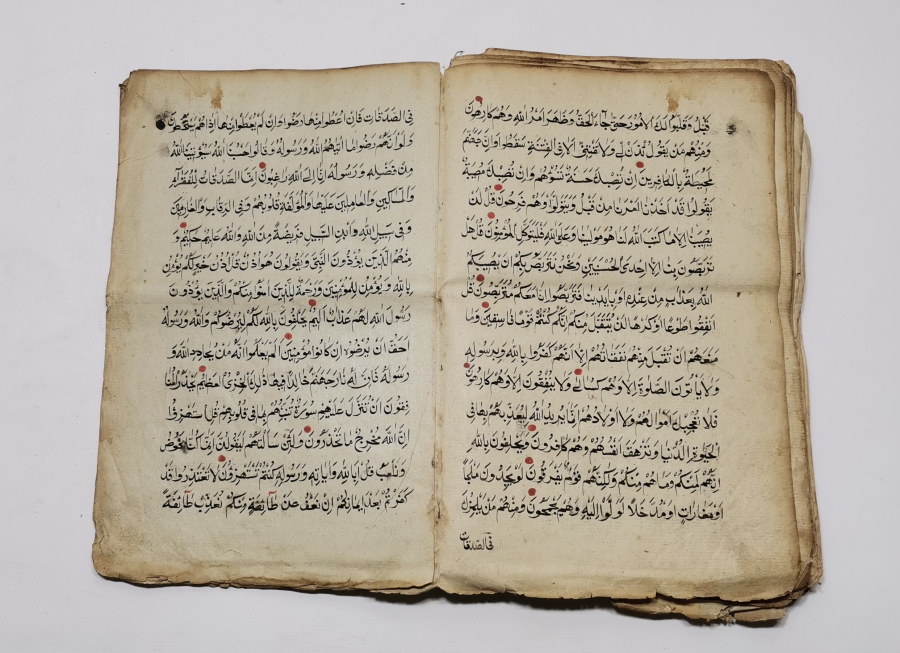 قَبْلُ وَقَلَّبُوا لَكَ الْأُمُورَ حَتَّى جَاءَ الْحَقُّ وَظَهَرَ أَمْرُ اللَّهِ وَهُمْ كَارِهُونَ
وَمِنْهُمْ مَنْ يَقُولُ ئْذَنْ لِي وَلَا تَفْتِنِّي أَلَا فِي الْفِتْنَةِ سَقَطُوا وَإِنَّ جَهَنَّمَ
لَمُحِيطَةٌ بِالْكَافِرِينَ إِنْ تُصِبْكَ حَسَنَةٌ تَسُؤْهُمْ وَإِنْ تُصِبْكَ مُصِيبَةٌ
يَقُولُوا قَدْ أَخَذْنَا أَمْرَنَا مِنْ قَبْلُ وَيَتَوَلَّوْا وَهُمْ فَرِحُونَ قُلْ لَنْ
يُصِيبَنَا إِلَّا مَا كَتَبَ اللَّهُ لَنَا هُوَ مَوْلَانَا وَعَلَى اللَّهِ فَلْيَتَوَكَّلِ الْمُؤْمِنُونَ قُلْ هَلْ
تَرَبَّصُونَ بِنَا إِلَّا إِحْدَى الْحُسْنَيَيْنِ وَنَحْنُ نَتَرَبَّصُ بِكُمْ أَنْ يُصِيبَكُمُ
اللَّهُ بِعَذَابٍ مِنْ عِنْدِهِ أَوْ بِأَيْدِينَا فَتَرَبَّصُوا إِنَّا مَعَكُمْ مُتَرَبِّصُونَ قُلْ
أَنْفِقُوا طَوْعًا أَوْ كَرْهًا لَنْ يُتَقَبَّلَ مِنْكُمْ إِنَّكُمْ كُنْتُمْ قَوْمًا فَاسِقِينَ وَمَا
مَنَعَهُمْ أَنْ تُقْبَلَ مِنْهُمْ نَفَقَاتُهُمْ إِلَّا أَنَّهُمْ كَفَرُوا بِاللَّهِ وَبِرَسُولِهِ
وَلَا يَأْتُونَ الصَّلٰوةَ إِلَّا وَهُمْ كُسَالَى وَلَا يُنْفِقُونَ إِلَّا وَهُمْ كَارِهُونَ
فَلَا تُعْجِبْكَ أَمْوَالُهُمْ وَلَا أَوْلَادُهُمْ إِنَّمَا يُرِيدُ اللَّهُ لِيُعَذِّبَهُمْ بِهَا فِي
الْحَيٰوةِ الدُّنْيَا وَتَزْهَقَ أَنْفُسُهُمْ وَهُمْ كَافِرُونَ وَيَحْلِفُونَ بِاللَّهِ
إِنَّهُمْ لَمِنْكُمْ وَمَا هُمْ مِنْكُمْ وَلَكِنَّهُمْ قَوْمٌ يَفْرَقُونَ لَوْ يَجِدُونَ مَلْجَأً
أَوْ مَغَارَاتٍ أَوْ مُدَّخَلًا لَوَلَّوْا إِلَيْهِ وَهُمْ يَجْمَحُونَ وَمِنْهُمْ مَنْ يَلْمِزُكَ
فِي الصَّدَقَاتِ
فِي الصَّدَقَاتِ فَإِنْ أُعْطُوا مِنْهَا رَضُوا وَإِنْ لَمْ يُعْطَوْا مِنْهَا إِذَا هُمْ يَسْخَطُونَ
وَلَوْ أَنَّهُمْ رَضُوا مَا آتَاهُمُ اللَّهُ وَرَسُولُهُ وَقَالُوا حَسْبُنَا اللَّهُ سَيُؤْتِينَا اللَّهُ
مِنْ فَضْلِهِ وَرَسُولُهُ إِنَّا إِلَى اللَّهِ رَاغِبُونَ إِنَّمَا الصَّدَقَاتُ لِلْفُقَرَاءِ
وَالْمَسَاكِينِ وَالْعَامِلِينَ عَلَيْهَا وَالْمُؤَلَّفَةِ قُلُوبُهُمْ وَفِي الرِّقَابِ وَالْغَارِمِينَ
وَفِي سَبِيلِ اللَّهِ وَابْنِ السَّبِيلِ فَرِيضَةً مِنَ اللَّهِ وَاللَّهُ عَلِيمٌ حَكِيمٌ وَ
مِنْهُمُ الَّذِينَ يُؤْذُونَ النَّبِيَّ وَيَقُولُونَ هُوَ أُذُنٌ قُلْ أُذُنُ خَيْرٍ لَكُمْ يُؤْمِنُ
بِاللَّهِ وَيُؤْمِنُ لِلْمُؤْمِنِينَ وَرَحْمَةٌ لِلَّذِينَ آمَنُوا مِنْكُمْ وَالَّذِينَ يُؤْذُونَ
رَسُولَ اللَّهِ لَهُمْ عَذَابٌ أَلِيمٌ يَحْلِفُونَ بِاللَّهِ لَكُمْ لِيُرْضُوكُمْ وَاللَّهُ وَرَسُولُهُ
أَحَقُّ أَنْ يُرْضُوهُ إِنْ كَانُوا مُؤْمِنِينَ أَلَمْ يَعْلَمُوا أَنَّهُ مَنْ يُحَادِدِ اللَّهَ وَ
رَسُولَهُ فَأَنَّ لَهُ نَارَ جَهَنَّمَ خَالِدًا فِيهَا ذَلِكَ الْخِزْيُ الْعَظِيمُ يَحْذَرُ الْمُنَا
فِقُونَ أَنْ تُنَزَّلَ عَلَيْهِمْ سُورَةٌ تُنَبِّئُهُمْ بِمَا فِي قُلُوبِهِمْ قُلِ اسْتَهْزِئُوا
إِنَّ اللَّهَ مُخْرِجٌ مَا تَحْذَرُونَ وَلَئِنْ سَأَلْتَهُمْ لَيَقُولُنَّ إِنَّمَا كُنَّا نَخُوضُ
وَنَلْعَبُ قُلْ أَبِاللَّهِ وَآيَاتِهِ وَرَسُولِهِ كُنْتُمْ تَسْتَهْزِئُونَ لَا تَعْتَذِرُوا قَدْ
كَفَرْتُمْ بَعْدَ إِيمَانِكُمْ إِنْ نَعْفُ عَنْ طَائِفَةٍ مِنْكُمْ نُعَذِّبْ طَائِفَةً